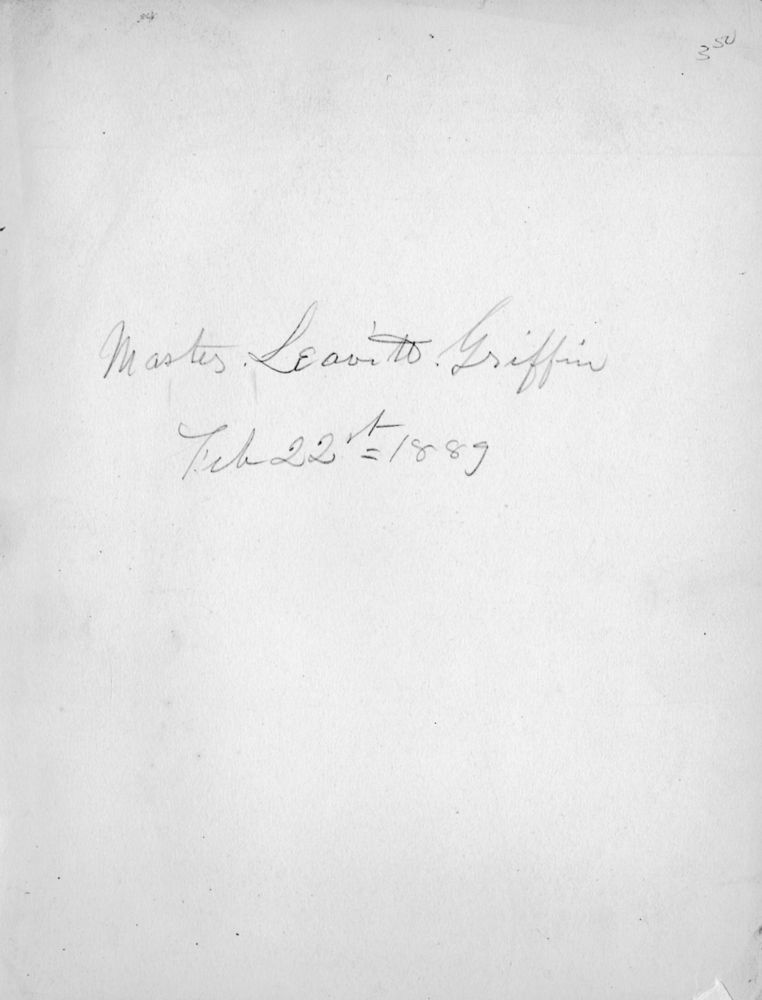 3 50
Master. Leavitt. Griffin
Feb 22st = 1889